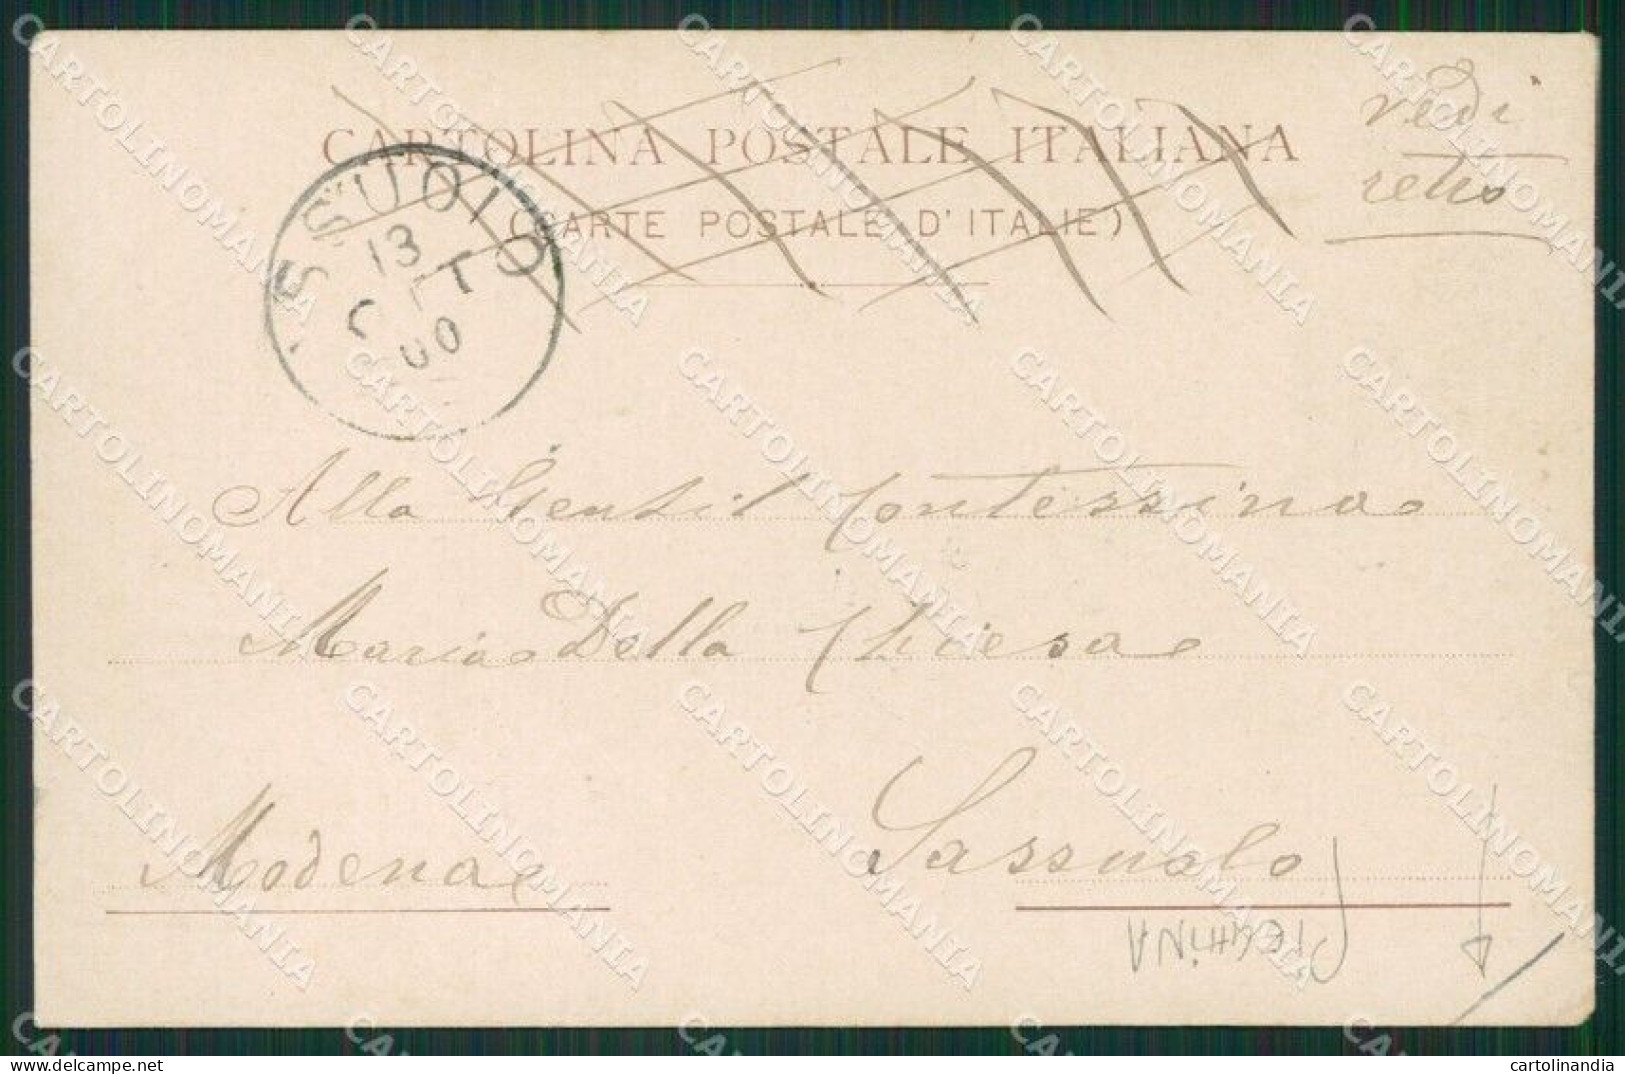 CARTOLINA POSTALE ITALIANA
(CARTE POSTALE D'ITALIE)
vedi
retro
SSUOLO
13
OTT
00
Alla Gentil Contessina
Maria Della Chiesa
Sassuolo
Modena
PIEGHINA
CARTOLINOMANIA
delcampe.net
cartolinandia